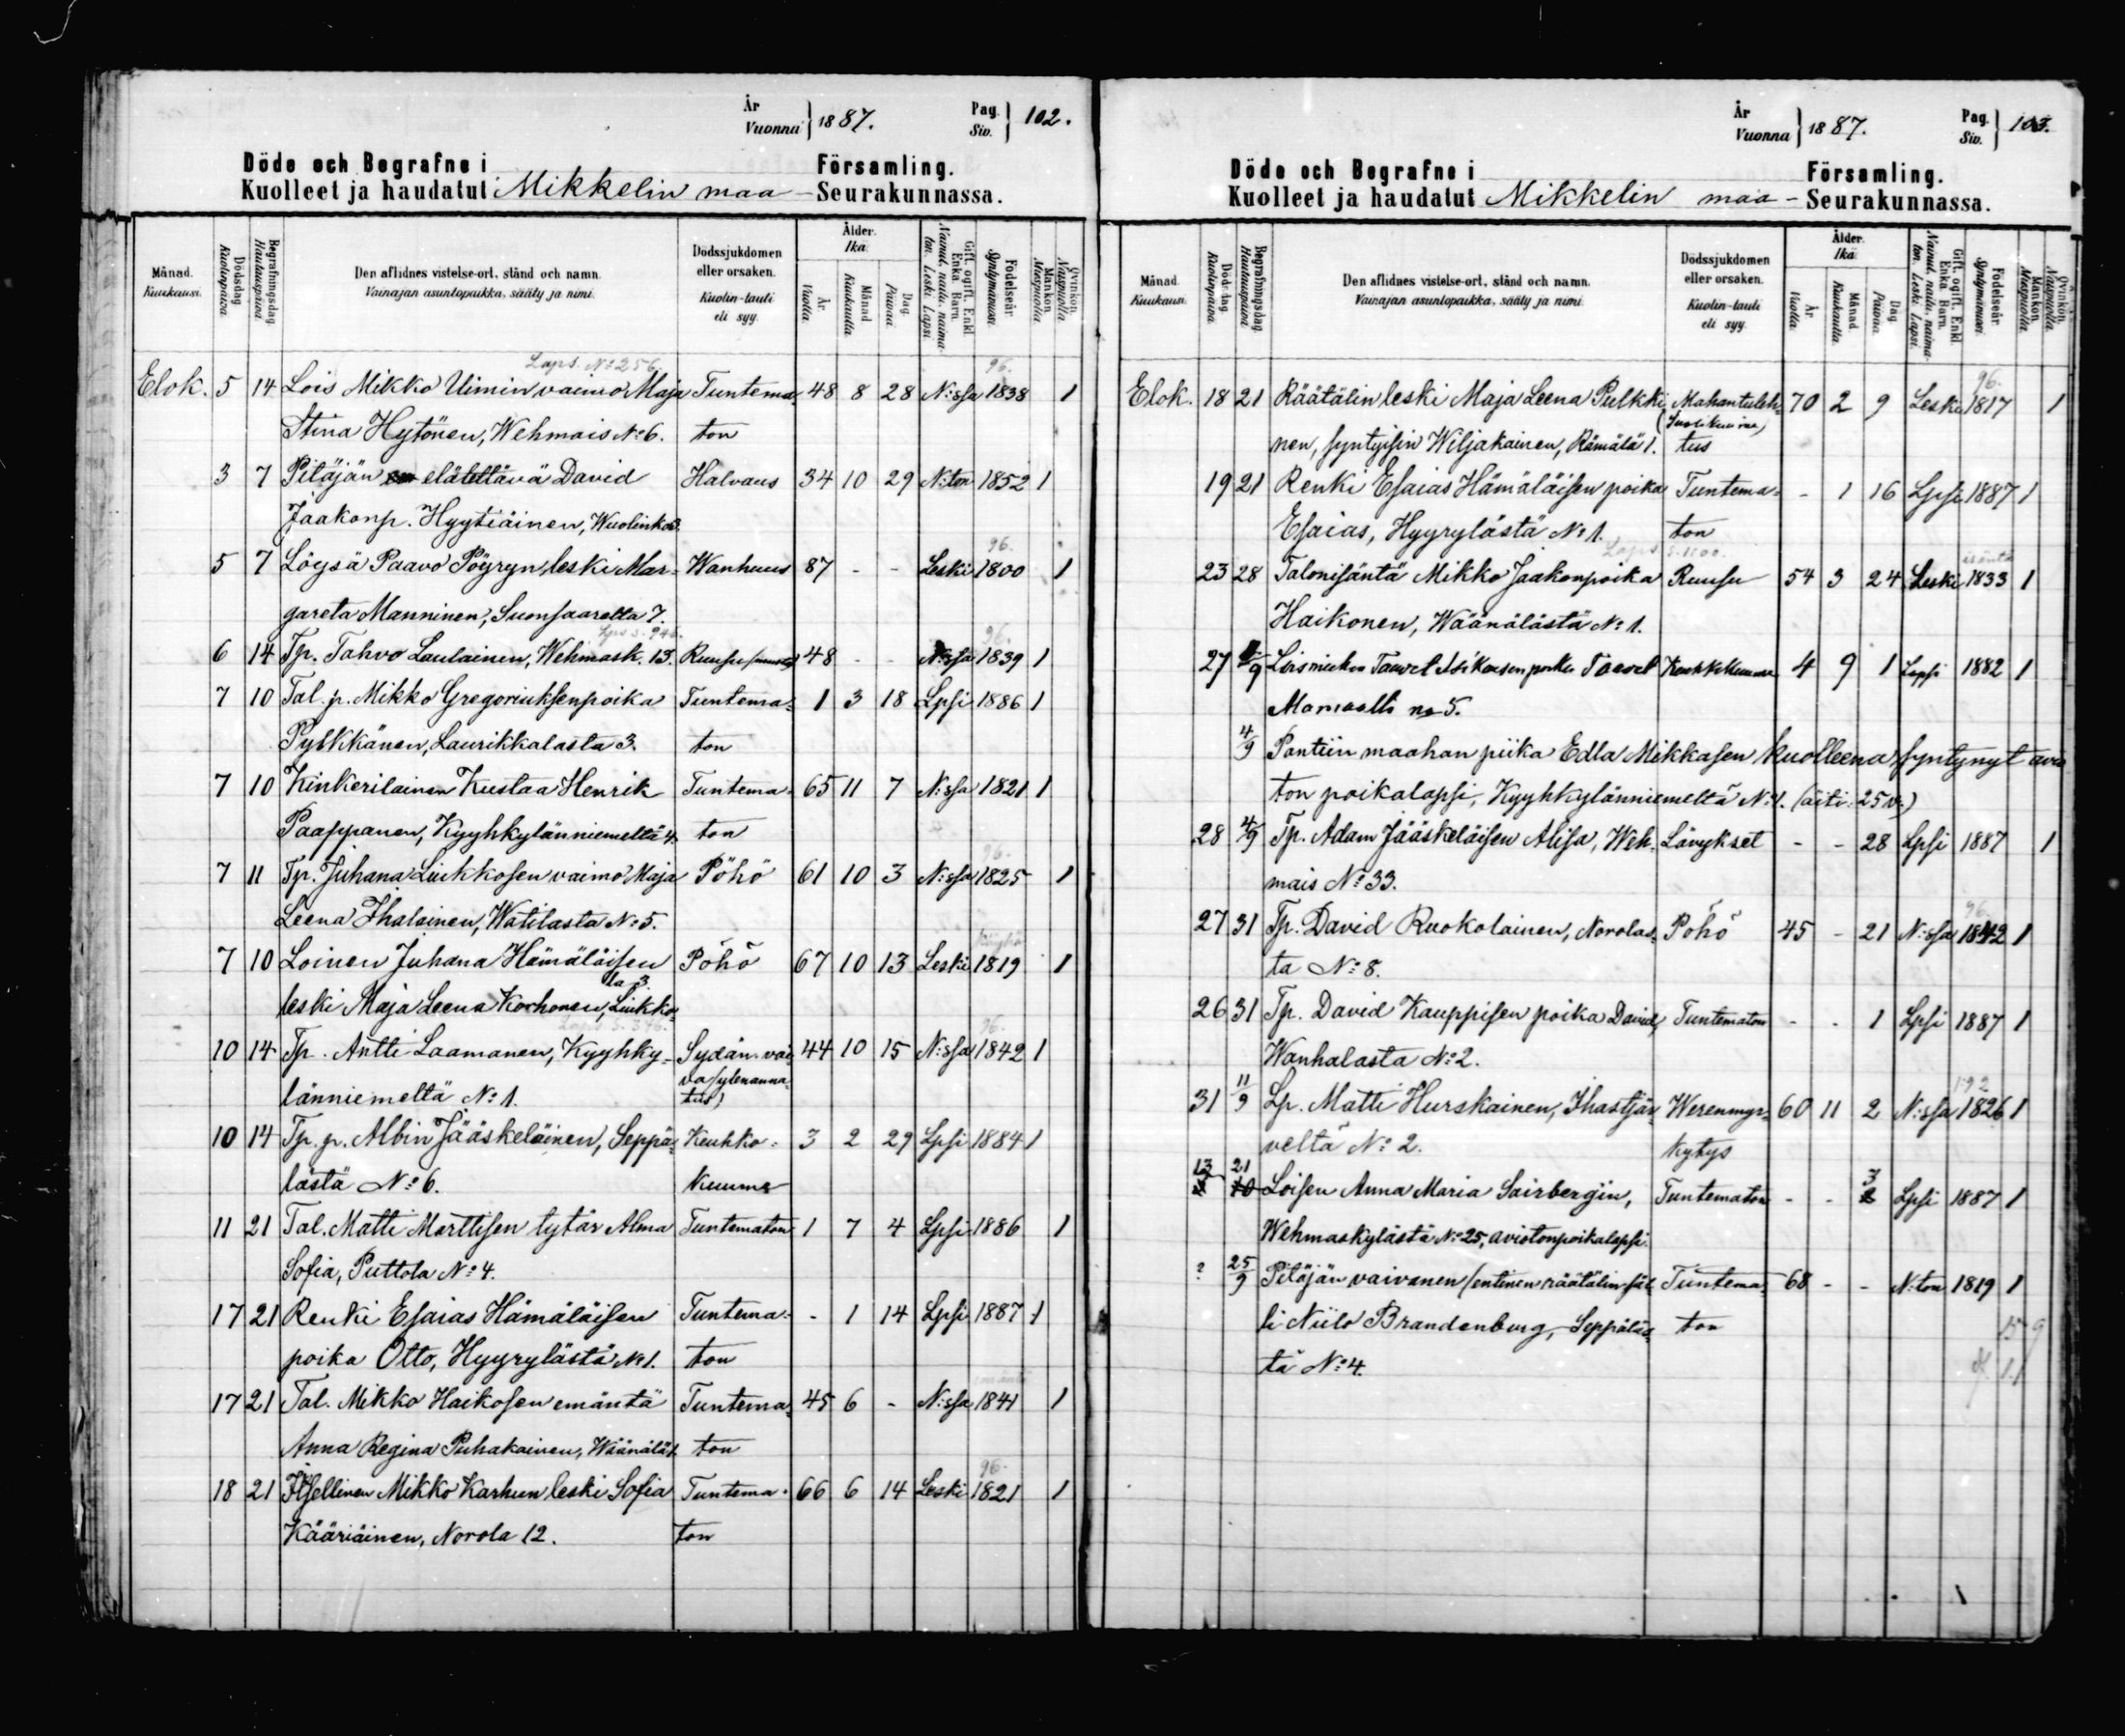 År
Vuonna } 1887.
Pag.
Siv. } 102.
Döde och Begrafne i Församling.
Kuolleet ja haudatut Mikkelin maa - Seurakunnassa.
Månad. Kuukausi.
Dödsdag. Kuolinpäivä.
Begrafningsdag. Hautauspäivä.
Den aflidnes vistelse-ort, stånd och namn.
Vainajan asuntopaikka, sääty ja nimi.
Dödssjukdomen eller orsaken.
Kuolin-tauti eli syy.
Ålder. Ikä.
År. Vuotta.
Månad. Kuukautta.
Dag. Päivää.
Gift, ogift, Enkl. Enka. Barn.
Nainut, naitu, naimaton, Leski. Lapsi.
Födelseår. Syntymävuosi.
Mankön. Miespuolia.
Qvinkön. Naispuolia.
Laps. No 256. 96.
Elok. 5 14 Lois Mikko Uimin vaimo Maja Tuntema- 48 8 28 N:ssa 1838 1
Stina Hytönen, Wehmais No 6. ton
3 7 Pitäjän elätettävä David Halvaus 34 10 29 N:ton 1852 1
Jaakonp. Hyytiäinen, Wuolinko
96.
5 7 Löysä Paavo Pöyryn leski Mar- Wanhuus 87 - - Leski 1800 1
gareta Manninen, Suonsaarella 7.
96.
6 14 Tp. Tahvo Laulainen, Wehmask. 13. Ruusu 48 - - N:ssa 1839 1
7 10 Tal. p. Mikko Gregoriuksenpoika Tuntema- 1 3 18 Lpsi 1886 1
Pylkkänen, Laurikkalasta 3. ton
7 10 Kinkerilainen Kustaa Henrik Tuntema- 65 11 7 N:ssa 1821 1
Paappanen, Kyyhkylänniemeltä 4. ton
96.
7 11 Tp. Juhana Liukkosen vaimo Maja Pöhö 61 10 3 N:ssa 1825 1
Leena Ihalainen, Watilasta No 5.
7 10 Loinen Juhana Hämäläisen Pöhö 67 10 13 Leski 1819 1
leski Maja Leena Korhonen, Liukko- la 3.
96.
10 14 Tp. Antti Laamanen, Kyyhky- Sydän-vai- 44 10 15 N:ssa 1842 1
länniemeltä No 1. va
10 14 Tp. p. Albin Jääskeläinen, Seppä- Keuhko- 3 2 29 Lpsi 1884 1
lästä No 6. kuume
11 21 Tal. Matti Marttisen tytär Alma Tuntematon 1 7 4 Lpsi 1886 1
Sofia, Puttola No 4.
17 21 Renki Esaias Hämäläisen Tuntema- - 1 14 Lpsi 1887 1
poika Otto, Hyyrylästä No 1. ton
emäntä
17 21 Tal. Mikko Haikosen emäntä Tuntema- 45 6 - N:ssa 1841 1
Anna Regina Puhakainen, Wäänälä 1. ton
96.
18 21 Itsellinen Mikko Karhun leski Sofia Tuntema- 66 6 14 Leski 1821 1
Kääriäinen, Norola 12. ton
År
Vuonna } 1887.
Pag.
Siv. } 103.
Döde och Begrafne i Församling.
Kuolleet ja haudatut Mikkelin maa - Seurakunnassa.
Månad. Kuukausi.
Döds-dag. Kuolinpäivä.
Begrafningsdag. Hautauspäivä.
Den aflidnes vistelse-ort, stånd och namn.
Vainajan asuntopaikka, sääty ja nimi.
Dödssjukdomen eller orsaken.
Kuolin-tauti eli syy.
Ålder. Ikä.
År. Vuotta.
Månad. Kuukautta.
Dag. Päivää.
Gift, ogift, Enkl. Enka. Barn.
Nainut, naitu, naimaton, Leski. Lapsi.
Födelseår. Syntymävuosi.
Mankön. Miespuolia.
Qvinkön. Naispuolia.
96.
Elok. 18 21 Räätälin leski Maja Leena Pulkki- Mahantuleh- 70 2 9 Leski 1817 1
nen, syntyisin Wiljakainen, Rämälä 1. tus
19 21 Renki Esaias Hämäläisen poika Tuntema- - 1 16 Lpsi 1887 1
Esaias, Hyyrylästä No 1. ton
isäntä
23 28 Talonisäntä Mikko Jaakonpoika Ruusu 54 3 24 Leski 1833 1
Haikonen, Wäänälästä No 1.
27 Loismiehen Taavet poika Taavet 4 9 1 Lapsi 1882 1
no 5.
4/9 Pantiin maahan piika Edla Mikkasen kuolleena syntynyt avio
ton poikalapsi, Kyyhkylänniemeltä N:1. (äiti: 25 v.)
28 4/9 Tp. Adam Jääskeläisen Alisa, Weh- Lävykset - - 28 Lpsi 1887 1
mais No 33.
96.
27 31 Tp. David Ruokolainen, Norolas- Pöhö 45 - 21 N:ssa 1842 1
ta No 8.
26 31 Tp. David Kauppisen poika David, Tuntematon - - 1 Lpsi 1887 1
Wanhalasta No 2.
192
31 11/9 Lp. Matti Hurskainen, Ihastjär- Werenmyr- 60 11 2 N:ssa 1826 1
veltä No 2. kytys
13 21 Loisen Anna Maria Sairbergin, Tuntematon - - 3 Lpsi 1887 1
Wehmaskylästä No 25, aviotonpoikalapsi.
? 25/9 Pitäjän vaivanen (entinen räätälin säl- Tuntema- 68 - - N:ton 1819 1
li Niilo Brandenburg, Seppäläs- ton
tä No 4.
15 9